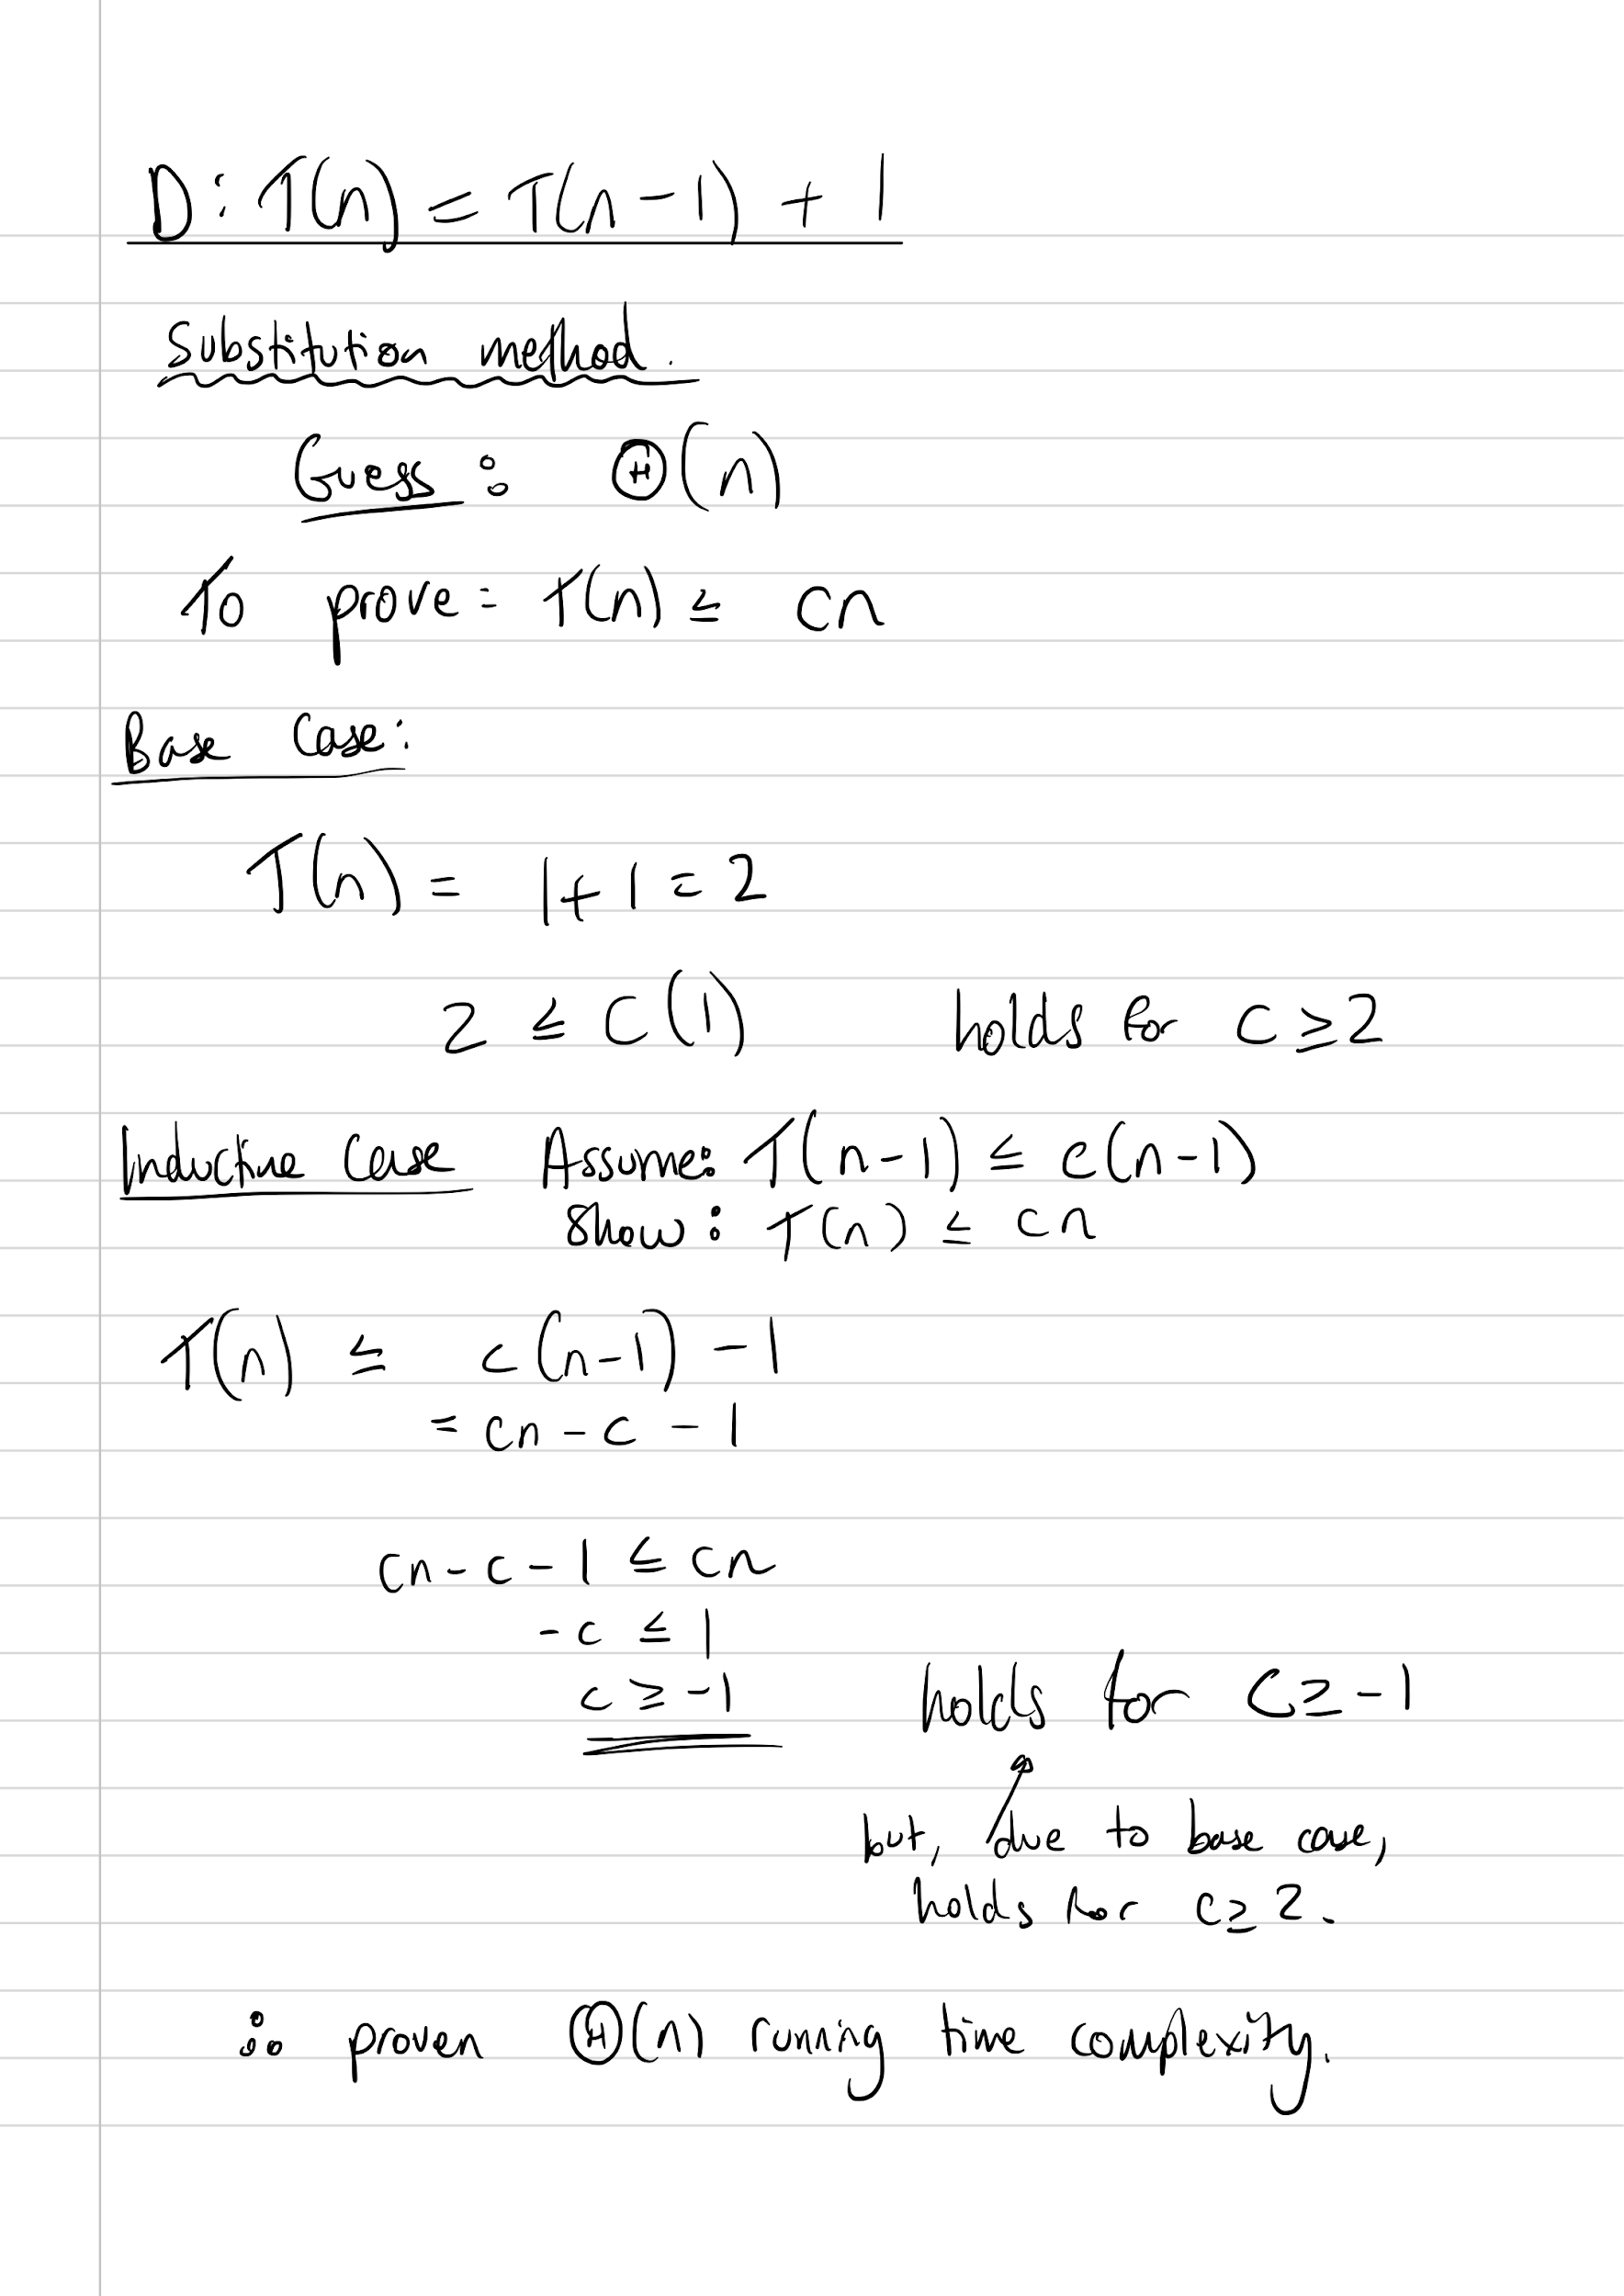 D: T(n) = T(n-1) + 1
Substitution method.
Guess: Θ(n)
To prove = T(n) ≤ cn
Base Case:
T(n) = 1+1=2
2 ≤ C(1) holds for C ≥ 2
Inductive Case Assume: T(n-1) ≤ c(n-1)
Show: T(n) ≤ cn
T(n) ≤ c(n-1) - 1
= cn - c - 1
cn - c - 1 ≤ cn
-c ≤ 1
c ≥ -1 holds for C ≥ -1
but, due to base case,
holds for c ≥ 2.
∴ proven Θ(n) running time complexity.